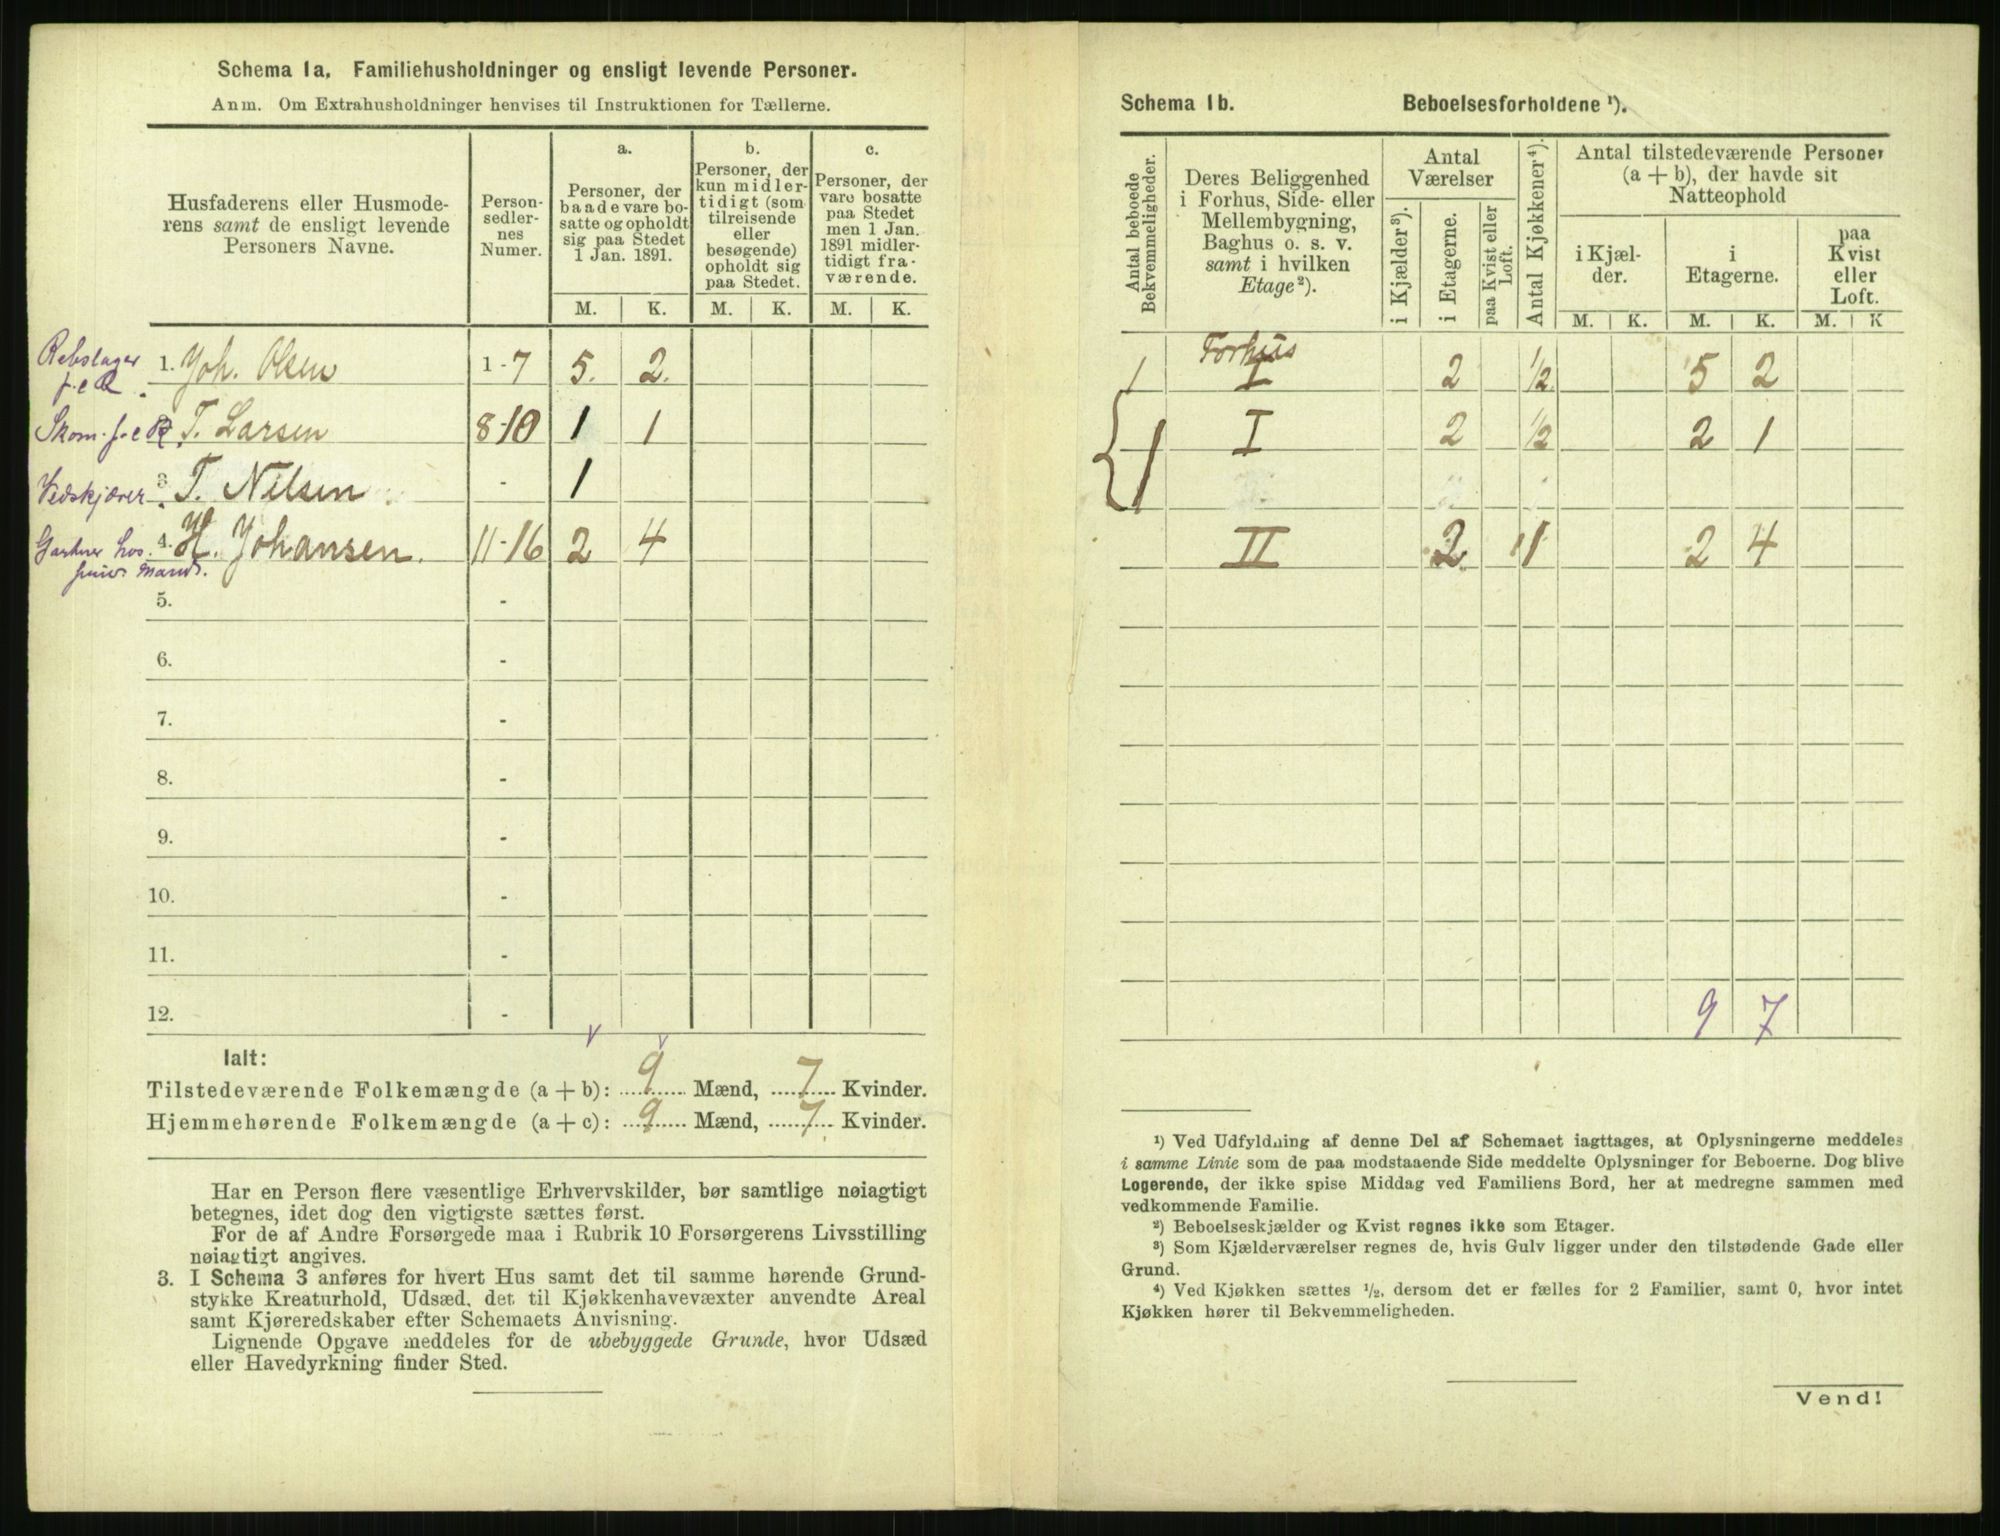 Schema 1a. Familiehusholdninger og ensligt levende Personer.
Anm. Om Extrahusholdninger henvises til Instruktionen for Tællerne.
Husfaderens eller Husmode-
rens samt de ensligt levende
Personers Navne.
Person-
sedler-
nes
Numer.
a.
Personer, der
baade vare bo-
satte og opholdt
sig paa Stedet
1 Jan. 1891.
b.
Personer, der
kun midler-
tidigt (som
tilreisende
eller
besøgende)
opholdt sig
paa Stedet.
c.
Personer, der
vare bosatte
paa Stedet
men 1 Jan.
1891 midler-
tidigt fra-
værende.
M. K. M. K. M. K.
Rebslager
f.e.R.
1. Joh. Olsen 1-7 5. 2.
Skom. f.e.R. T. Larsen 8-10 1 1
Vedskjærer. 3. T. Nilsen - 1
Gartner hos 4. H. Johansen. 11-16 2 4
priv. Mand.
5. -
6. -
7. -
8. -
9. -
10. -
11. -
12. -
Ialt:
Tilstedeværende Folkemængde (a + b): 9 Mænd, 7 Kvinder.
Hjemmehørende Folkemængde (a + c): 9 Mænd, 7 Kvinder.
Har en Person flere væsentlige Erhvervskilder, bør samtlige nøiagtigt
betegnes, idet dog den vigtigste sættes først.
For de af Andre Forsørgede maa i Rubrik 10 Forsørgerens Livsstilling
nøiagtigt angives.
3. I Schema 3 anføres for hvert Hus samt det til samme hørende Grund-
stykke Kreaturhold, Udsæd, det til Kjøkkenhavevæxter anvendte Areal
samt Kjøreredskaber efter Schemaets Anvisning.
Lignende Opgave meddeles for de ubebyggede Grunde, hvor Udsæd
eller Havedyrkning finder Sted.
Schema 1b. Beboelsesforholdene ¹).
Antal beboede
Bekvemmeligheder.
Deres Beliggenhed
i Forhus, Side- eller
Mellembygning,
Baghus o. s. v.
samt i hvilken
Etage²).
Antal
Værelser
i Kjælder ³).
i Etagerne.
paa Kvist eller
Loft.
Antal Kjøkkener ⁴).
Antal tilstedeværende Personer
(a + b), der havde sit
Natteophold
i Kjæl-
der.
i
Etagerne.
paa
Kvist
eller
Loft.
M. K. M. K. M. K
Forhus
1 I 2 ½ 5 2
1 I 2 ½ 2 1
II 2 1 2 4
9 7
¹) Ved Udfyldning af denne Del af Schemaet iagttages, at Oplysningerne meddeles
i samme Linie som de paa modstaaende Side meddelte Oplysninger for Beboerne. Dog blive
Logerende, der ikke spise Middag ved Familiens Bord, her at medregne sammen med
vedkommende Familie.
²) Beboelseskjælder og Kvist regnes ikke som Etager.
³) Som Kjælderværelser regnes de, hvis Gulv ligger under den tilstødende Gade eller
Grund.
⁴) Ved Kjøkken sættes ½, dersom det er fælles for 2 Familier, samt 0, hvor intet
Kjøkken hører til Bekvemmeligheden.
Vend!